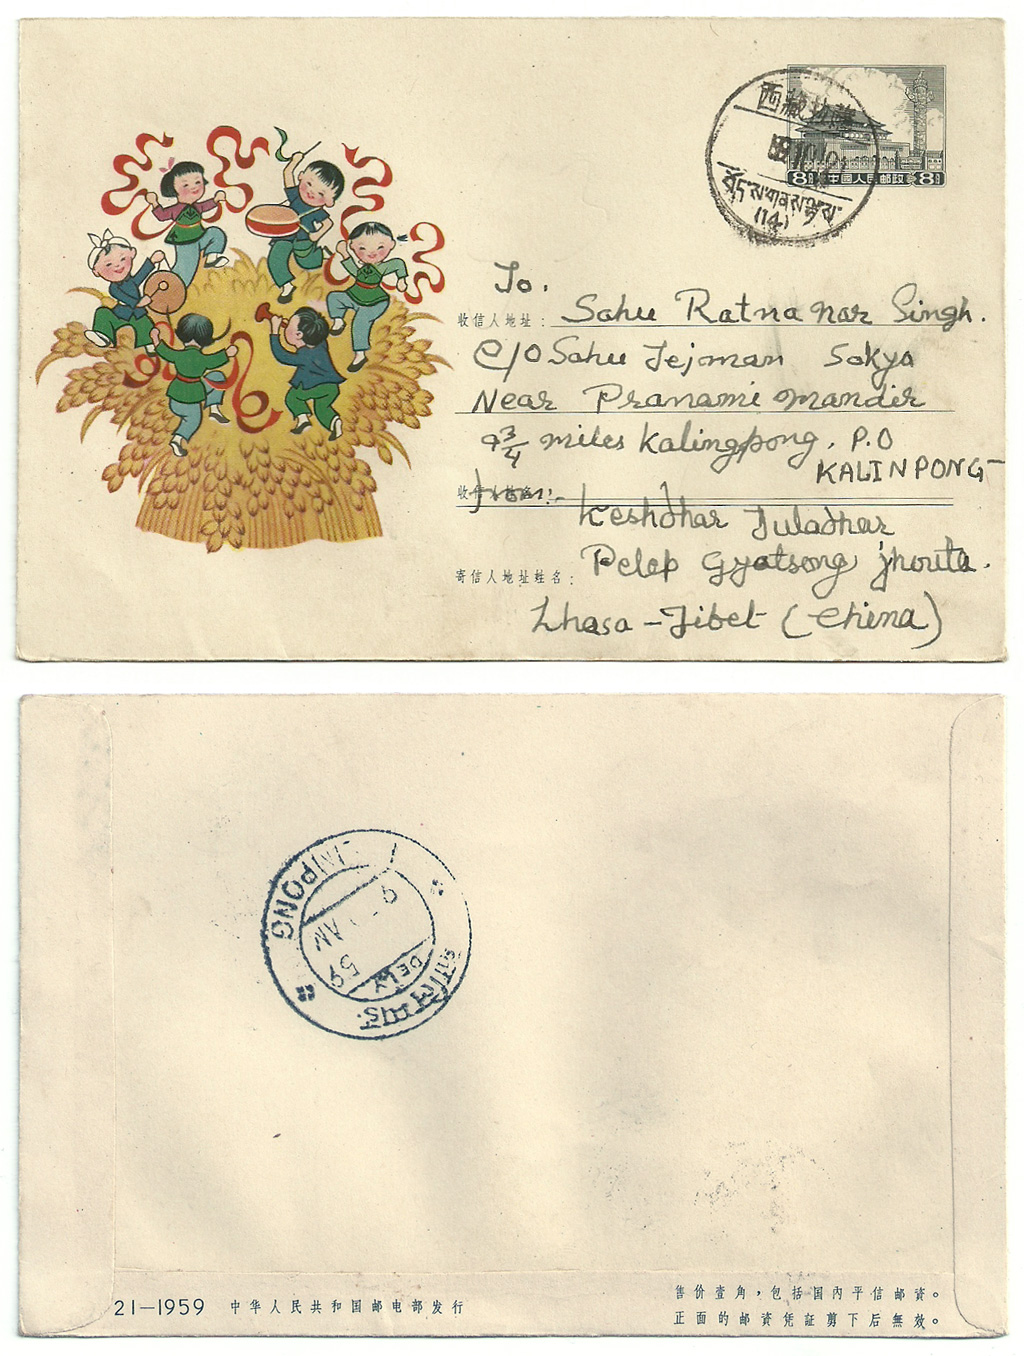 西藏拉薩
(14)
8分 中國人民邮政 8分
To.
收信人地址：
Sahu Ratna nar Singh.
C/O Sahu Tejman Sakya
Near Pranami mandir
9 3/4 miles Kalingpong. P.O
KALINPONG-
收信人姓名：
From:-
Keshdhar Tuladhar
Pelep Gyatsong jhouta.
寄信人地址姓名：
Lhasa - Tibet (China)
INPONG
9
AM
59
DELY
21—1959 中华人民共和国邮电部发行
售价壹角，包括国内平信邮资。
正面的邮资凭証剪下后無效。